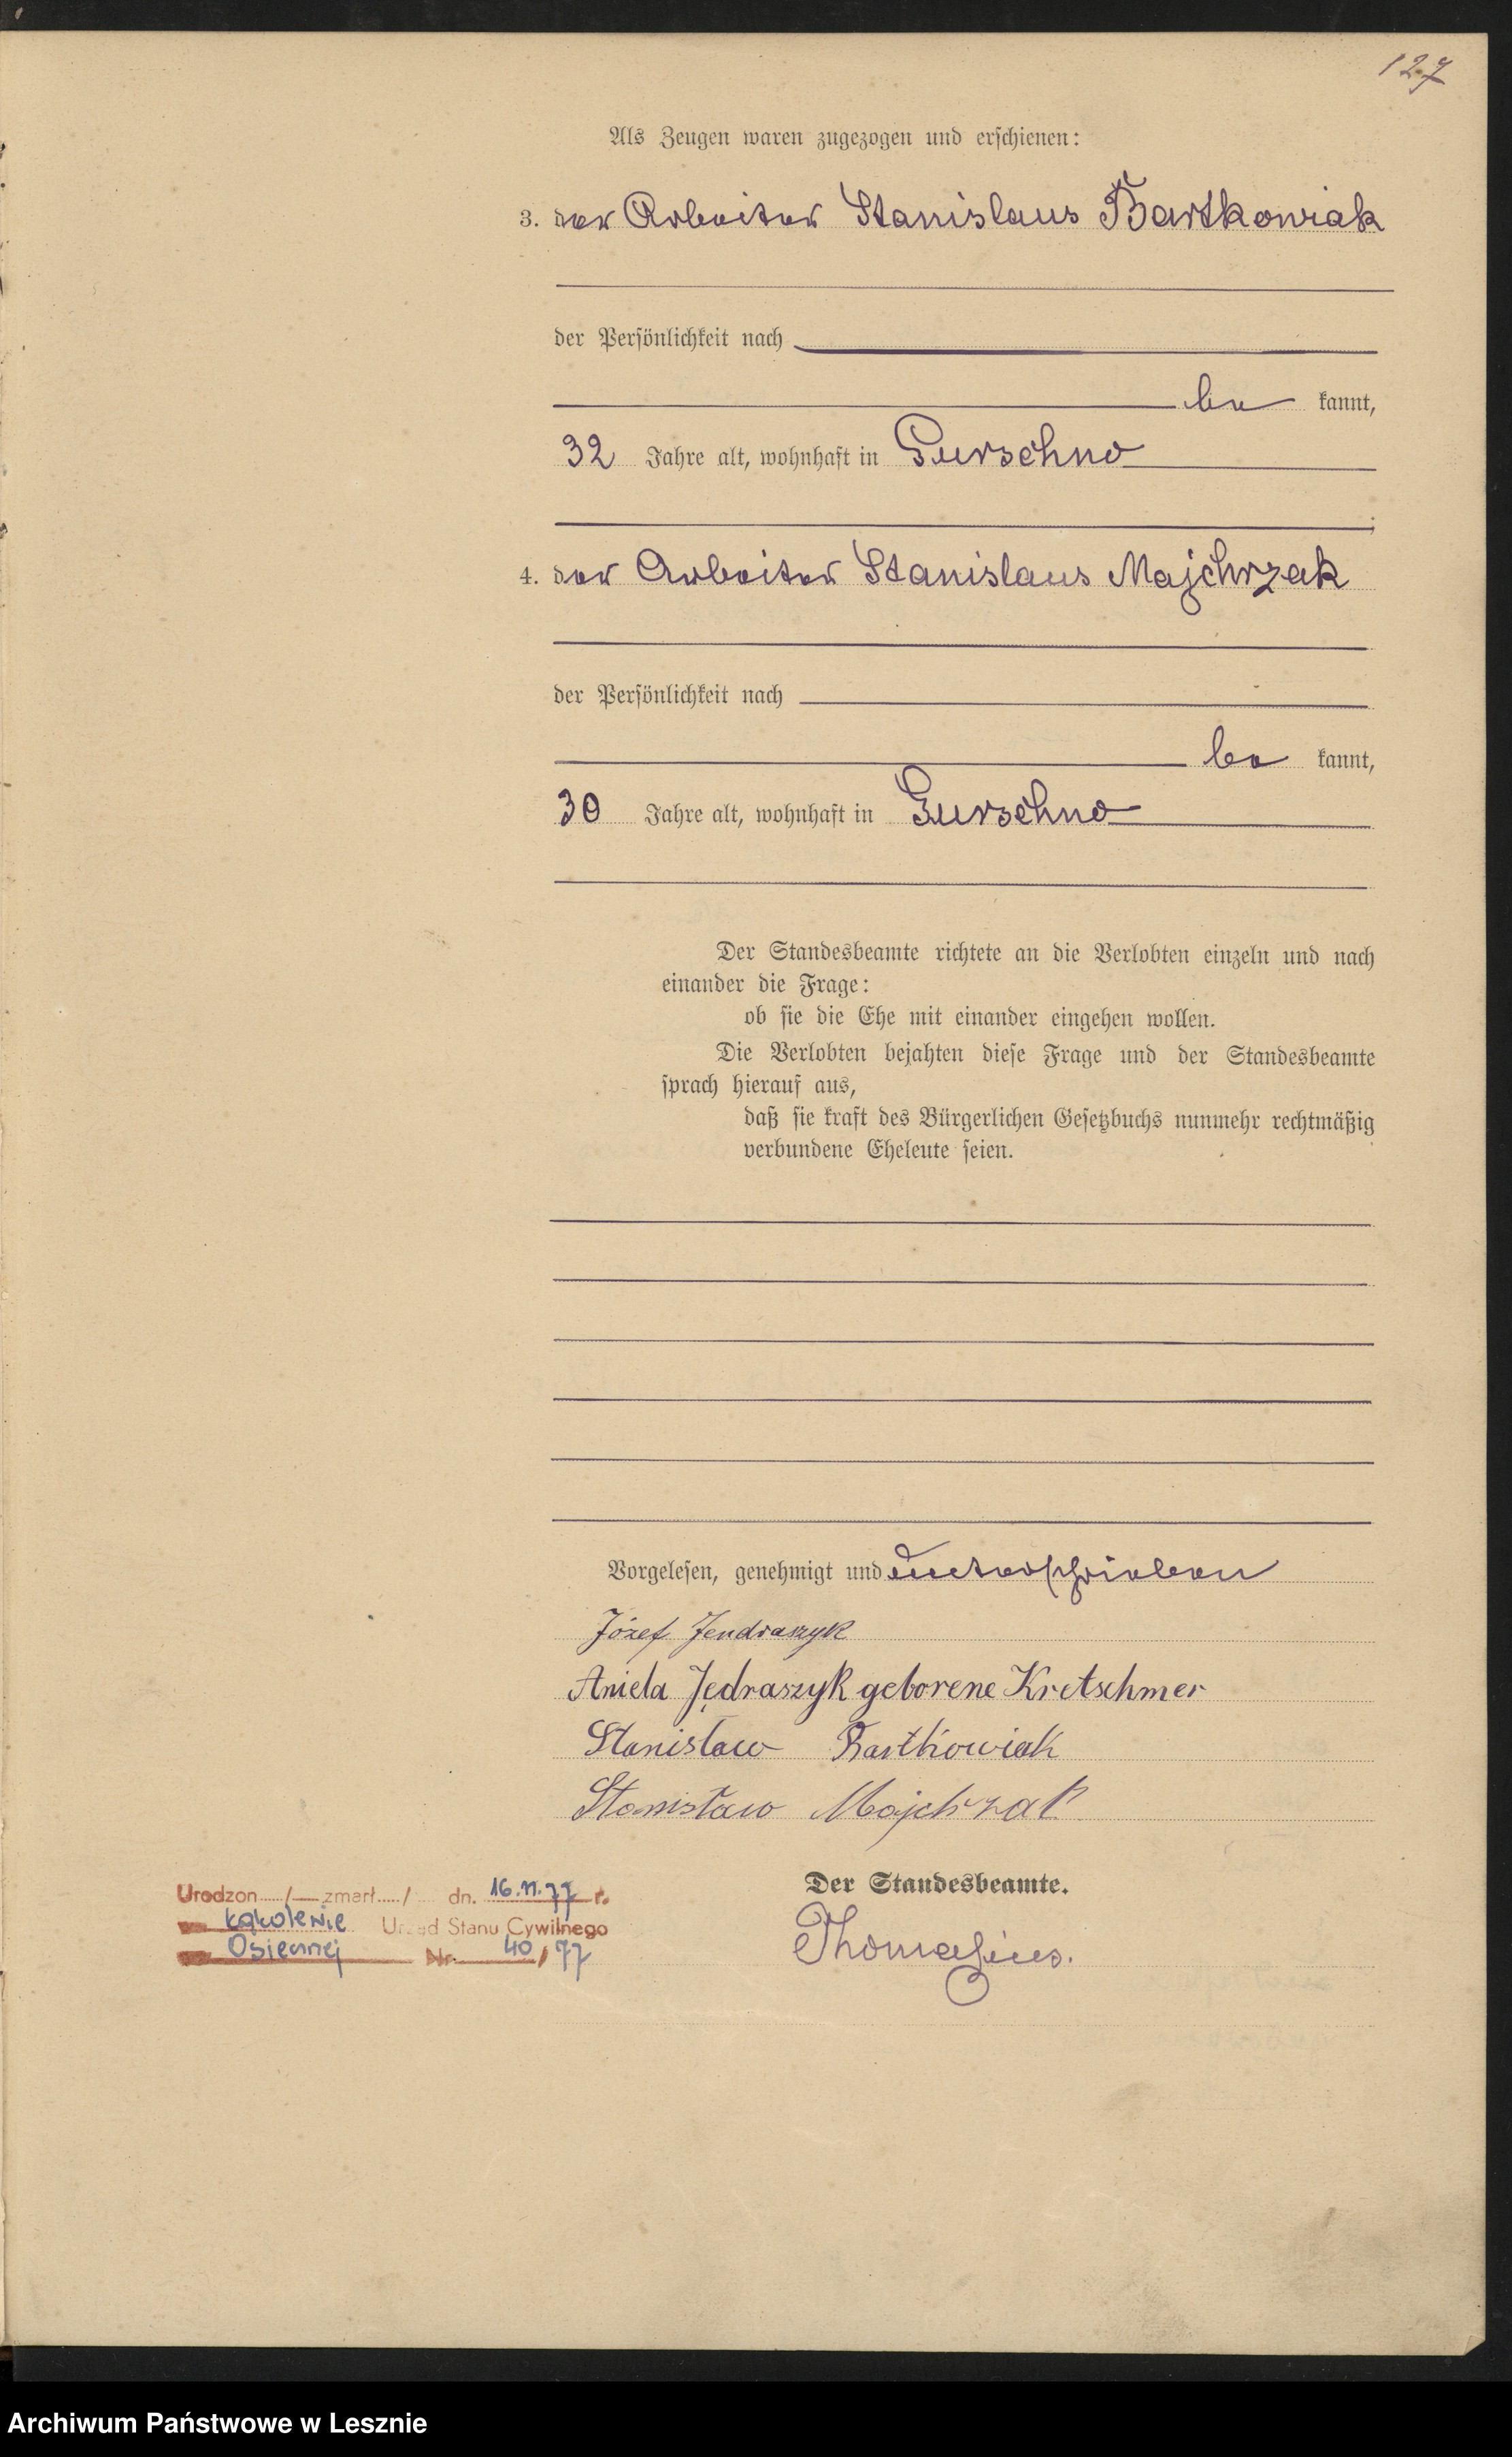 127
Als Zeugen waren zugezogen und erschienen:
3. der Arbeiter Stanislaus Bartkowiak
der Persönlichkeit nach
be kannt,
32 Jahre alt, wohnhaft in Gurschno
;
4. der Arbeiter Stanislaus Majchrzak
der Persönlichkeit nach
be kannt,
30 Jahre alt, wohnhaft in Gurschno
Der Standesbeamte richtete an die Verlobten einzeln und nach
einander die Frage:
ob sie die Ehe mit einander eingehen wollen.
Die Verlobten bejahten diese Frage und der Standesbeamte
sprach hierauf aus,
daß sie kraft des Bürgerlichen Gesetzbuchs nunmehr rechtmäßig
verbundene Eheleute seien.
Vorgelesen, genehmigt und unterschrieben
Józef Jendraszyk
Aniela Jędraszyk geborene Kretschmer
Stanisław Bartkowiak
Stanisław Majchrzak
Der Standesbeamte.
Thomasius.
Urodzon...../—zmarł...../ dn. 16.11.77 r.
Kąkolewie Urząd Stanu Cywilnego
Osiecznej Nr. 40/77
Archiwum Państwowe w Lesznie